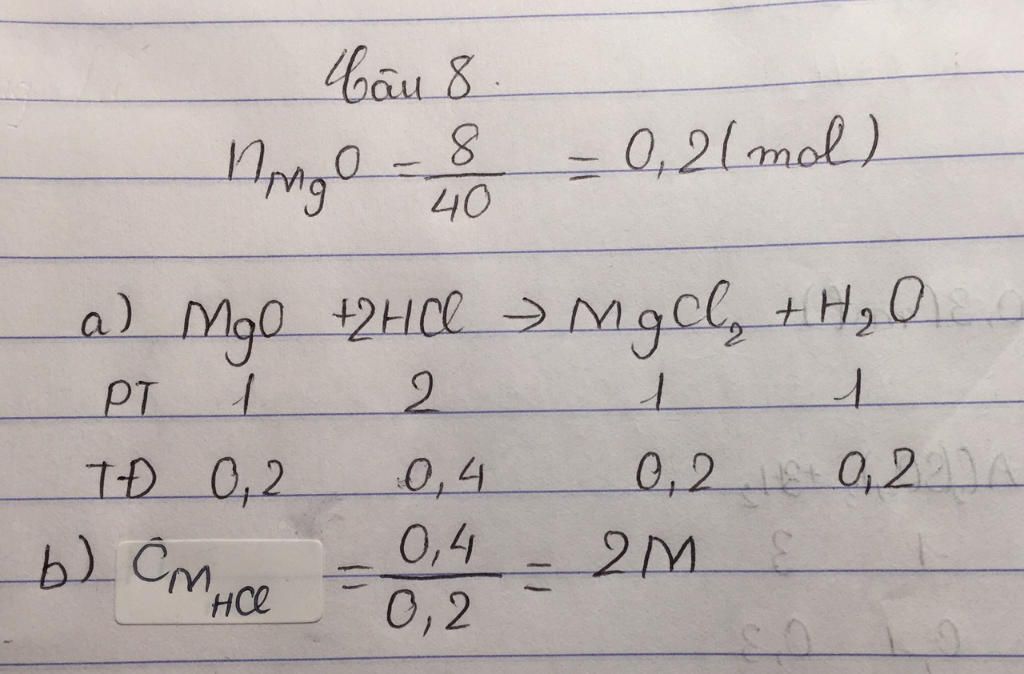 Câu 8.
nMgO = 8/40 = 0,2 (mol)
a) MgO +2HCl → MgCl₂ + H₂O
PT 1 2 1 1
TĐ 0,2 0,4 0,2 0,2
b) CM HCl = 0,4/0,2 = 2M